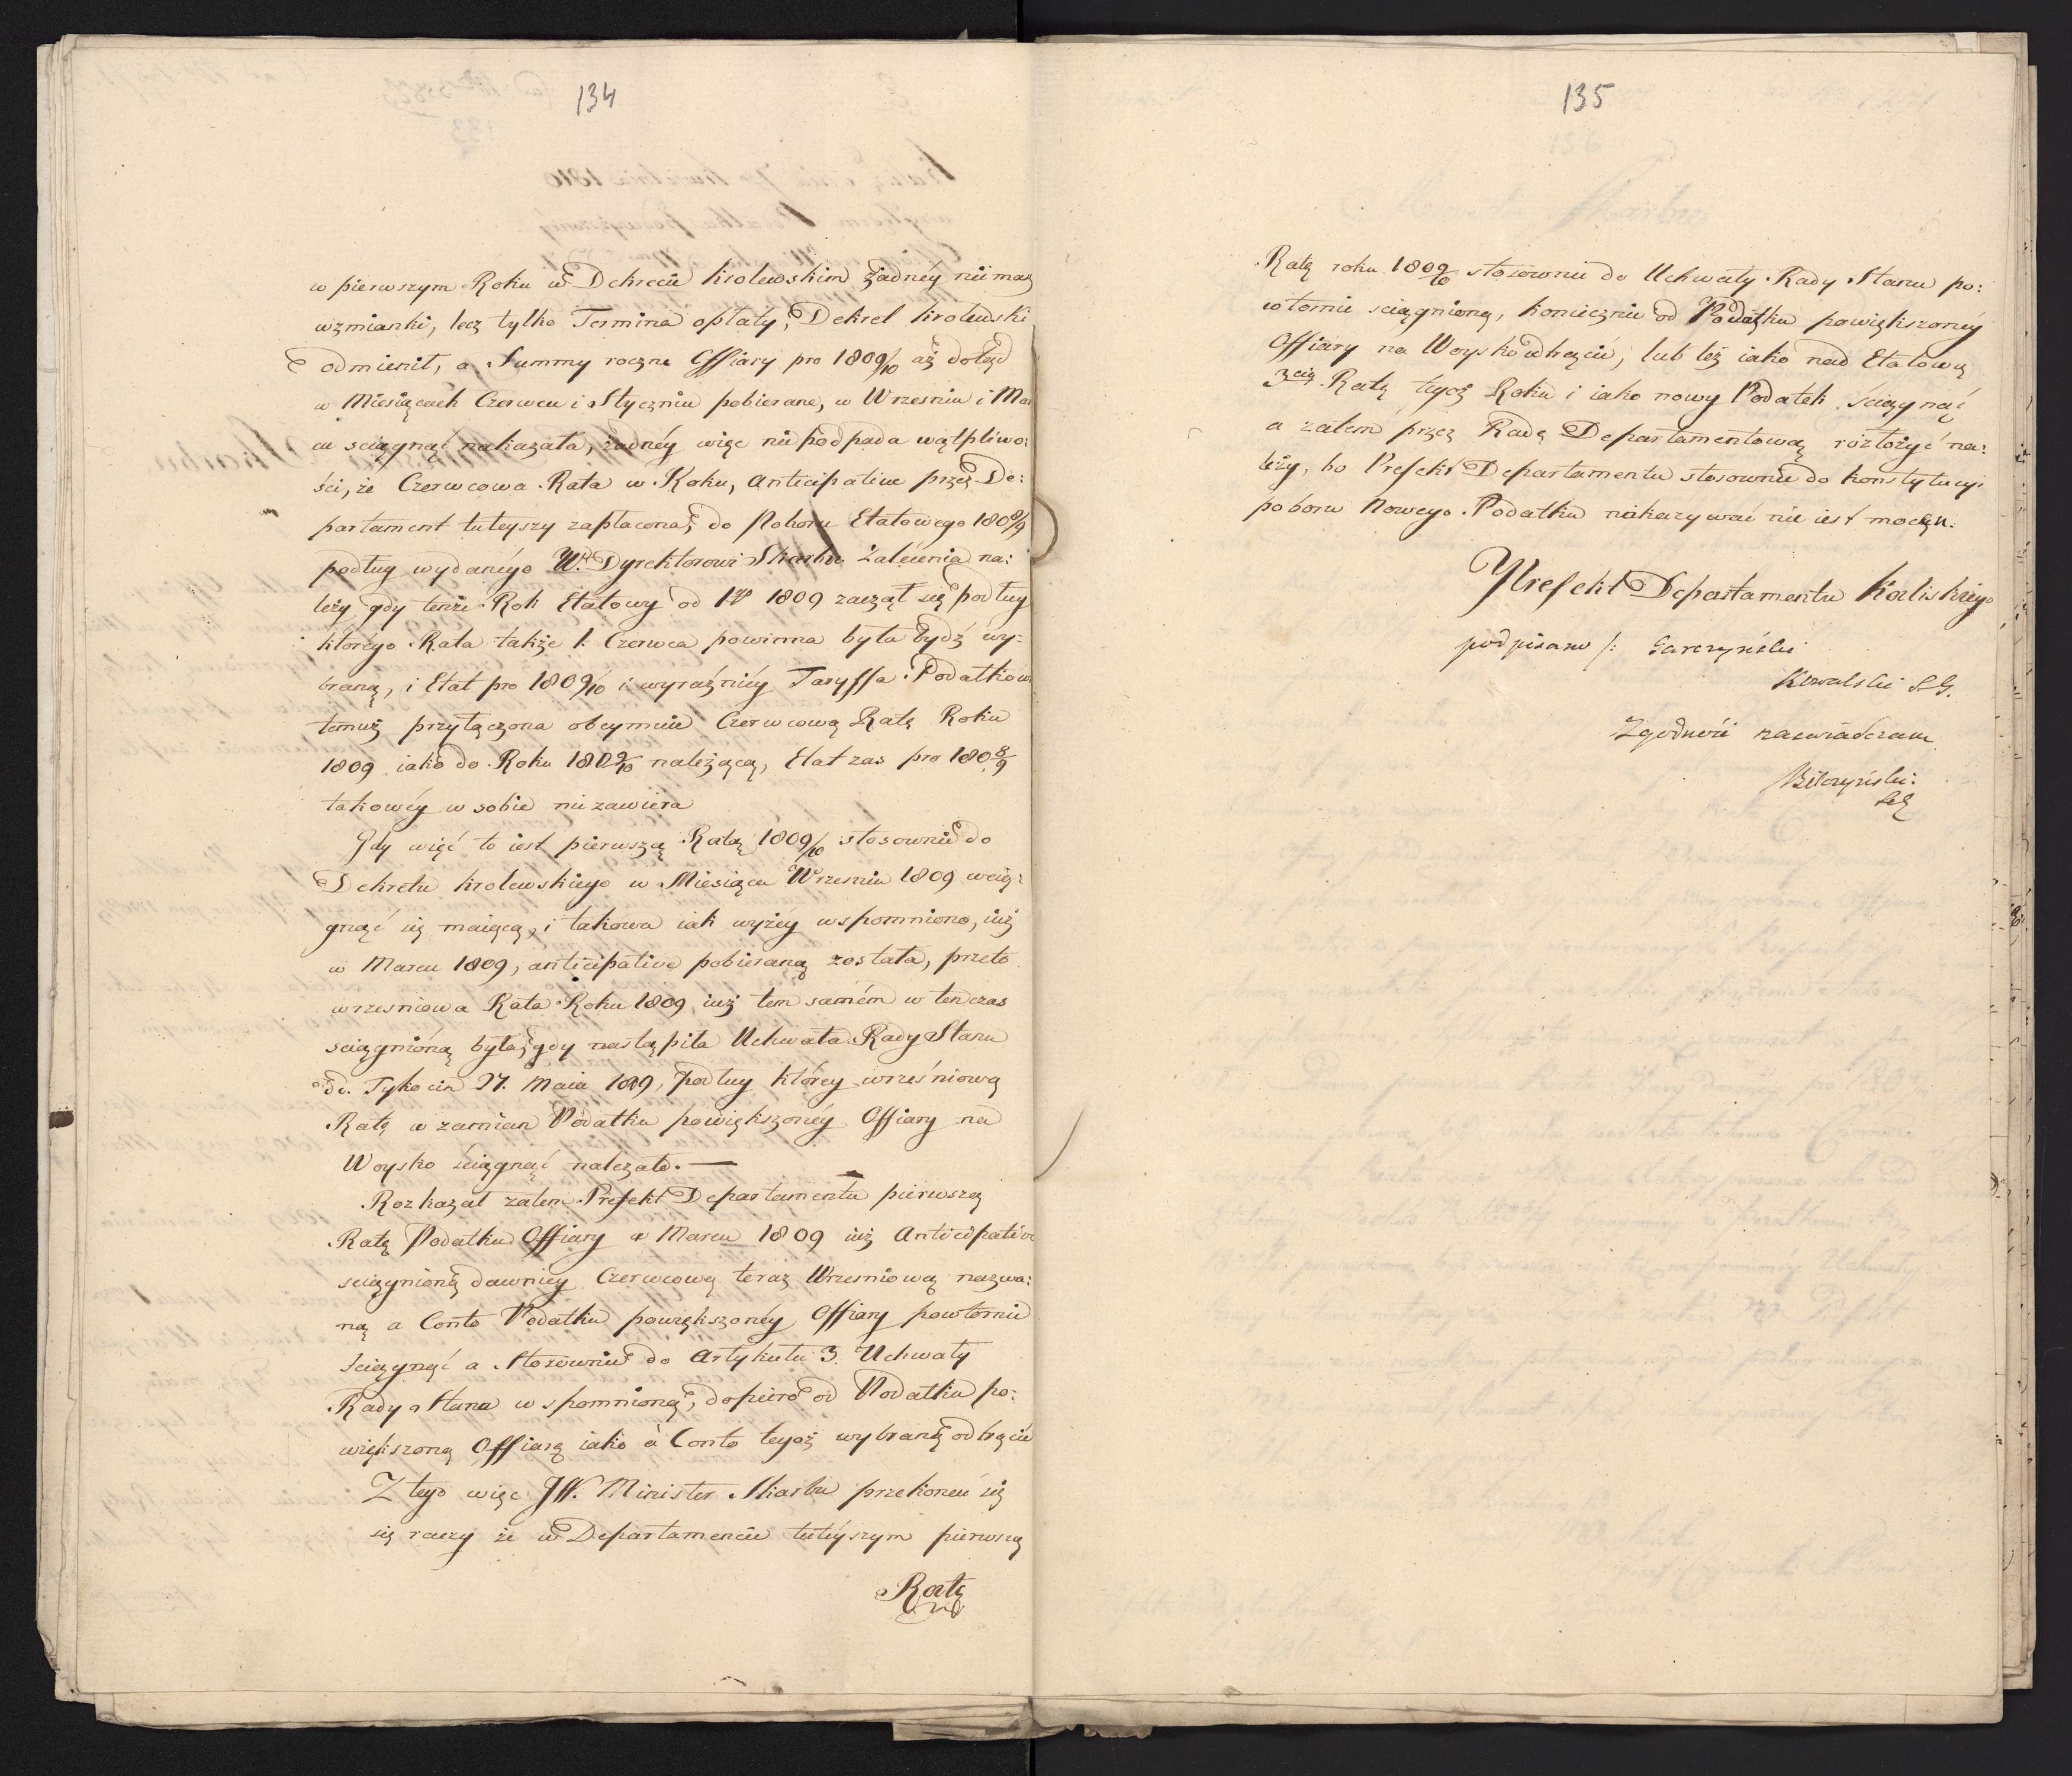 134
w pierwszym Roku w Dekrecie krolewskim żadney niemasz
wzmianki, lecz tylko Termina opłaty, Dekret krolewski
odmienił, a Summy roczne Offiary pro 1809/10 aż dotąd
w Miesiącach Czerwcu i Styczniu pobierane, w Wrzesniu i Mar
cu sciągnąć nakazała, żadnéy więc nie podpada wątpliwo:
ści, że Czerwcowa Rata w Roku, anticipative przez De:
partament tuteyszy zapłacona, do Poboru Etatowego 1808/9
podług wydanégo W. Dyrektorowi Skarbu zalécenia na:
leży gdy tenże Rok Etatowy od 1go 1809 zaczął się podług
którégo Rata także 1. Czerwca powinna była bydź wy=
braną, i Etat pro 1809/10 i wyraźniéy Taryffa Podatków
temuż przyłączona obeymuie Czerwcową Ratę Roku
1809 iako do Roku 1809/10 należącą, Etat zas pro 1808/9
takowéy w sobie niezawiera
Gdy więć to iest pierwszą Ratą 1809/10 stosownie do
Dekretu krolewskiego w Miesiącu Wrzesniu 1809 wcią:
gnąć się maiącą, i takowa iak wyżéy wspomniono, iuż
w Marcu 1809, anticipative pobieraną została, przeto
wrzesniowa Rata Roku 1809 iuż tem samém w tenczas
sciągnióną była, gdy nastąpiła Uchwała Rady Stanu
dd. Tykocin 27. Maia 1809, podług którey wrześniową
Ratę w zamian Podatku powiększonéy Offiary na
Woysko ściągnąć należało. —
Rozkazał zatem Prefekt Departamentu pierwszą
Ratę Podatku Offiary w Marcu 1809 iuż Anticipative
sciągnioną dawniey Czerwcową teraz Wrzesniową nazwa:
ną a Conto Podatku powiększonéy Offiary powtornie
ściągnąć a Stosownie do Artykułu 3. Uchwały
Rady Stanu wspomnioną, dopiero od Podatku po:
większoną Offiarą iako à Conto tegoż wybraną odtrącić
Z tego więc JW. Minister Skarbu przekonać się
się raczy że w Departamencie tutéyszym pierwszą
Ratę
135
Ratę roku 1809/10 stosownie do Uchwały Rady Stanu po:
wtornie sciągnioną, koniecznie od Podatku powiększonéy
Offiary na Woysko odtrącić, lub też iako nad Etatową
3cią Ratę tegoż Roku i iako nowy Podatek ściągnąć
a zatém przez Radę Departamentową rozłożyć na:
leży, bo Prefekt Departamentu stosownie do konstytucyi
poboru Nowego Podatku nakazywać nie iest mocen.
Prefekt Departamentu Kaliskiego
podpisano /: Garczyński
Kowalski S.G.
Zgodność zaswiadczam
Bilczyński: